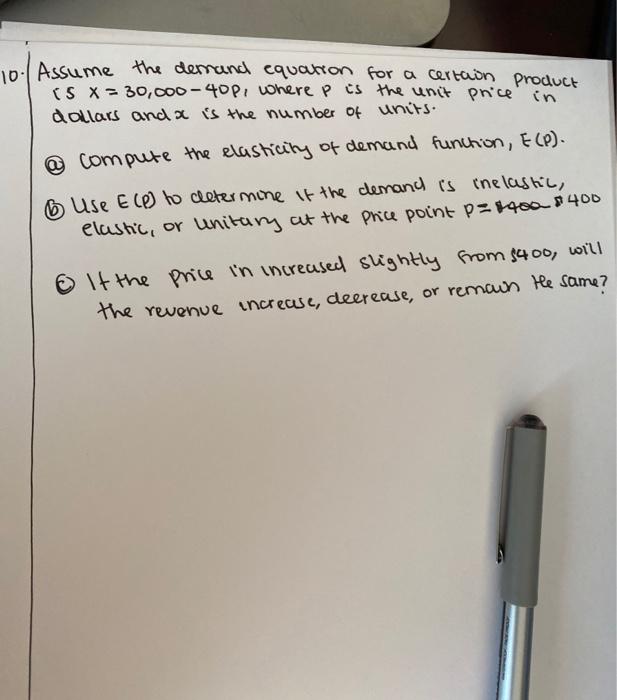 10. Assume the demand equation for a certain product
is x = 30,000 - 40p, where p is the unit price in
dollars and x is the number of units.
ⓐ Compute the elasticity of demand function, E(p).
ⓑ Use E(p) to determine if the demand is inelastic,
elastic, or unitary at the price point p = $400
ⓒ If the price in increased slightly from $400, will
the revenue increase, decrease, or remain the same?